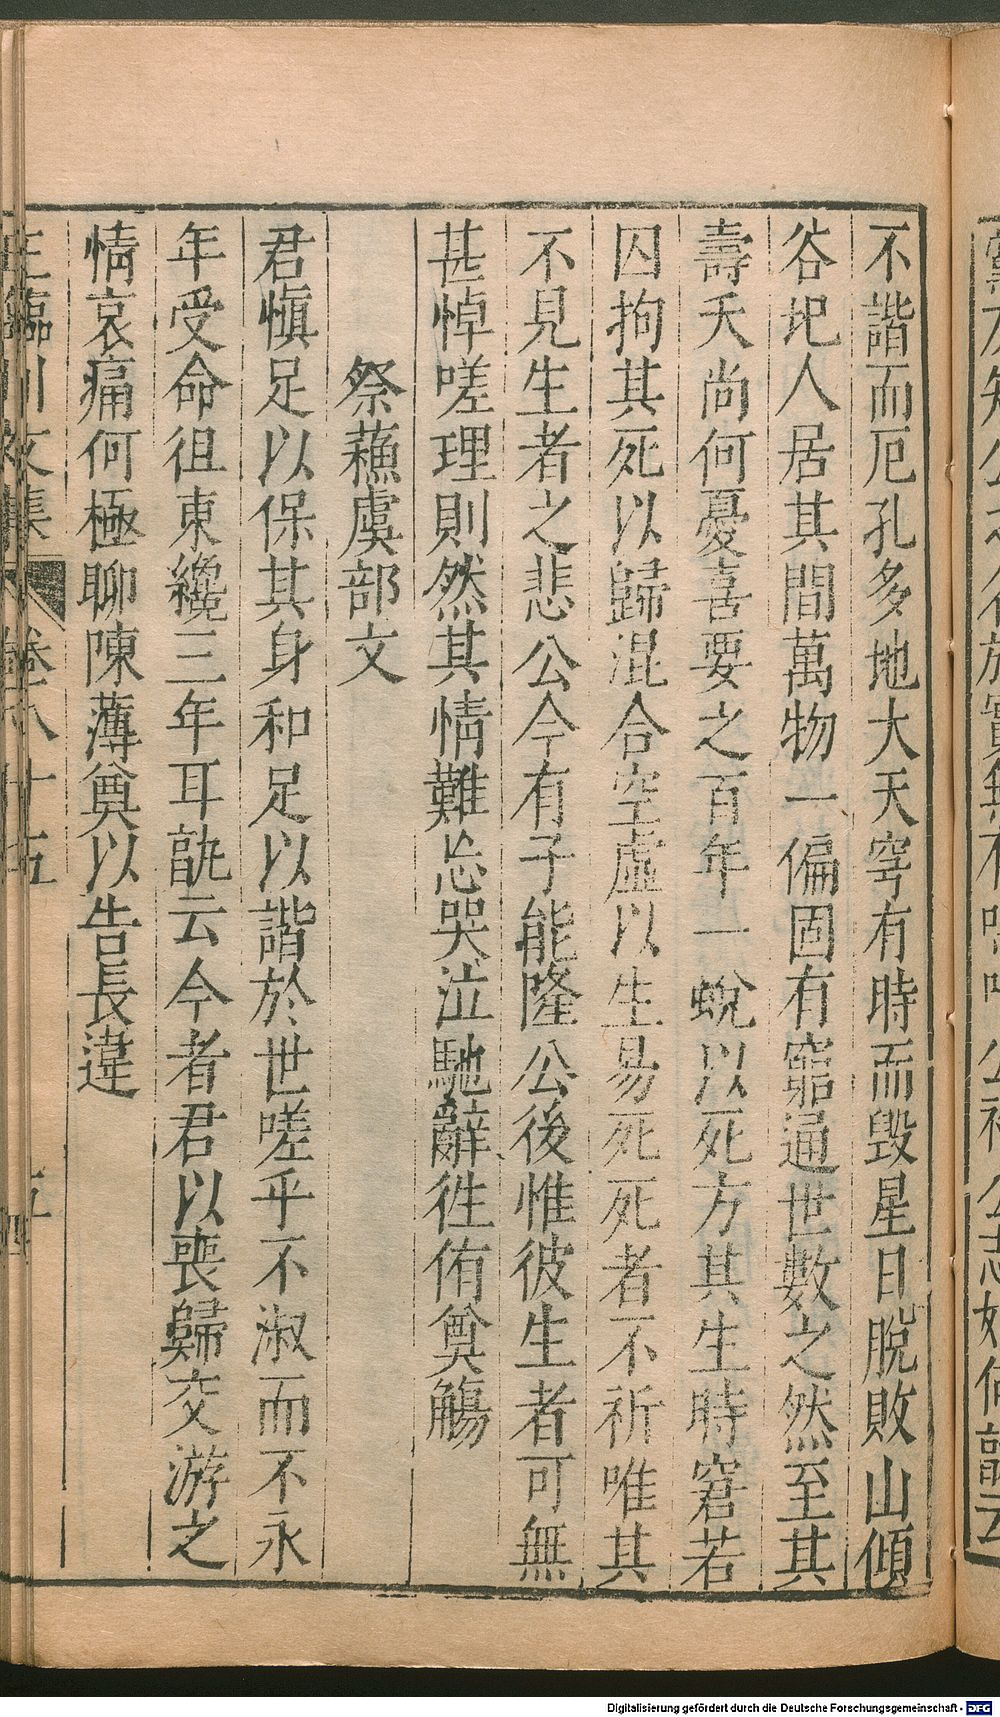 不諧而厄孔多地大天穹有時而毀星日脫敗山傾
谷圮人居其間萬物一偏固有窮通世數之然至其
壽夭尚何憂喜要之百年一蛻以死方其生時窘若
囚拘其死以歸混合空虛以生易死死者不祈唯其
不見生者之悲公今有子能隆公後惟彼生者可無
甚悼嗟理則然其情難忘哭泣馳辭徃侑奠觴
祭蘓虞部文
君慎足以保其身和足以諧於世嗟乎不淑而不永
年受命徂東纔三年耳孰云今者君以喪歸交游之
情哀痛何極聊陳薄奠以告長違
王臨川文集 卷八十五 五
Digitalisierung gefördert durch die Deutsche Forschungsgemeinschaft - DFG